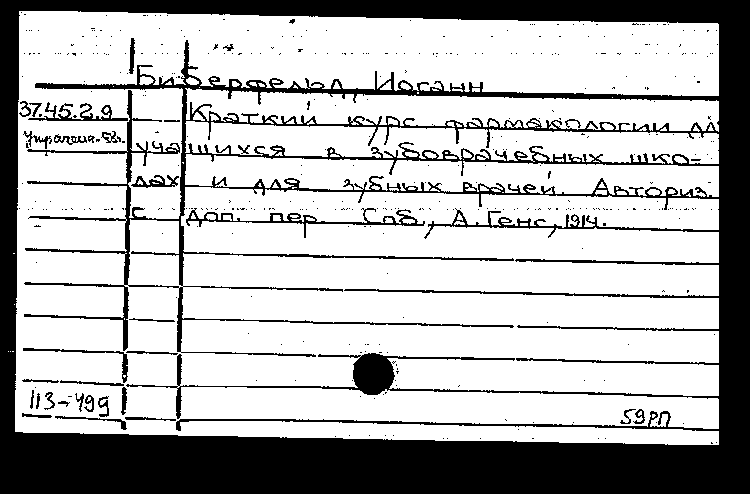 Биберфельд, Иоганн
37.45.2.9 Краткий курс фармакологии для
учащихся в зубоврачебных шко-
лах и для зубных врачей. Авториз.
с доп. пер. Спб., А. Генс, 1914.
113-499
59РП